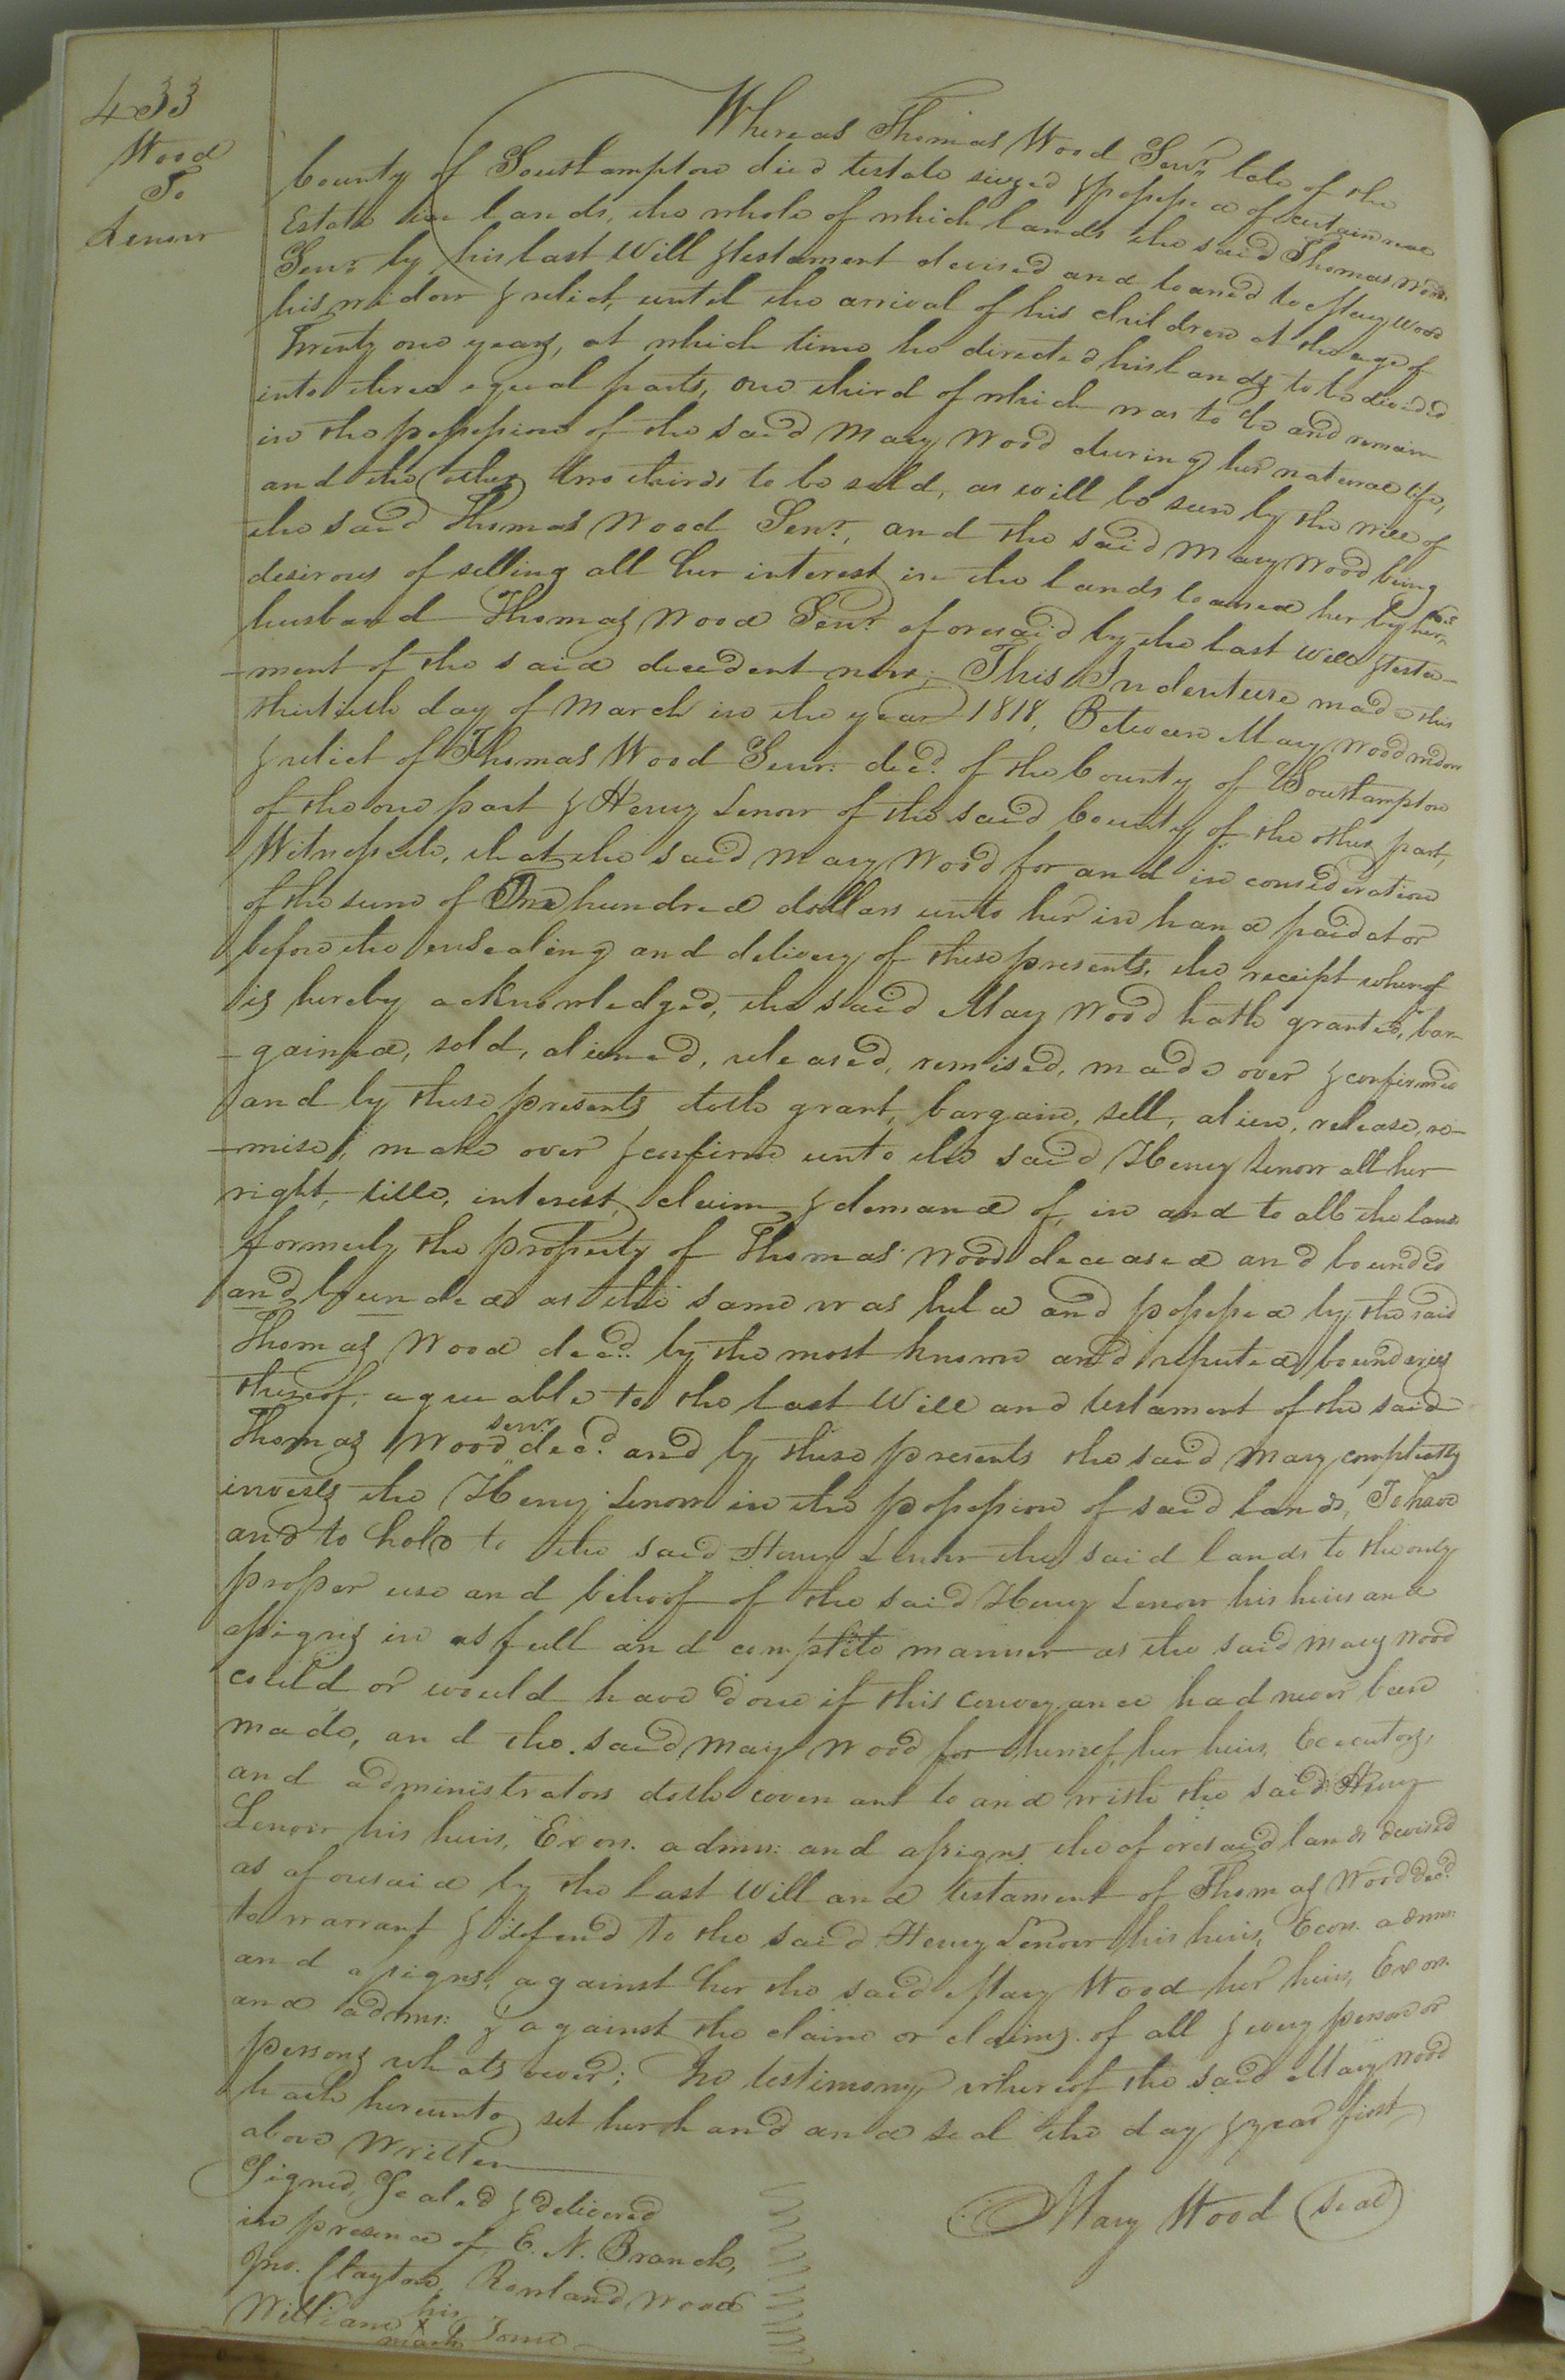 433
Wood
To
Lenow
Whereas Thomas Wood Senr. late of the
County of Southampton died testate siezed & possessed of certain real
Estate in lands, the whole of which lands the said Thomas Wood
Senr. by his last Will & testament devised and loaned to Mary Wood
his widow & relict, until the arrival of his children at the age of
Twenty one years, at which time he directed his lands to be divided
into three equal parts, one third of which was to be and remain
in the possession of the said Mary Wood during her natural life,
and the other two thirds to be sold, as will be seen by the will of
the said Thomas Wood Senr., and the said Mary Wood being
desirous of selling all her interest in the lands loaned her by her
husband Thomas Wood Senr. aforesaid by the last Will & testa-
-ment of the said decedent now; This Indenture made this
thirtieth day of March in the year 1818, Between Mary Wood widow
& relict of Thomas Wood Senr. decd. of the County of Southampton
of the one part & Henry Lenow of the said County of the other part,
Witnesseth, that the said Mary Wood for and in consideration
of the sum of One hundred dollars unto her in hand paid at or
before the ensealing and delivery of these presents, the receipt whereof
is hereby acknowledged, the said Mary Wood hath granted, bar-
-gained, sold, aliened, released, remised, made over & confirmed
and by these presents doth grant, bargain, sell, alien, release, re-
-mise, make over & confirm unto the said Henry Lenow all her
right, title, interest, claim & demand of, in and to all the land
formerly the property of Thomas Wood deceased and bounded
and bounded as the same was held and possessed by the said
Thomas Wood decd. by the most known and reputed boundaries
thereof, agreeable to the last Will and testament of the said
Thomas Wood senr. decd. and by these presents the said Mary completely
invests the Henry Lenow in the possession of said lands, To have
and to hold to the said Henry Lenow the said lands to the only
proper use and behoof of the said Henry Lenow his heirs and
assigns in as full and complete manner as the said Mary Wood
could or would have done if this conveyance had never been
made, and the said Mary Wood for herself, her heirs, Executors,
and administrators doth covenant to and with the said Henry
Lenow his heirs, Exors. admrs: and assigns the aforesaid lands devised
as aforesaid by the last Will and testament of Thomas Wood decd.
to warrant & defend to the said Henry Lenow his heirs, Exors. admrs:
and assigns, against her the said Mary Wood her heirs, Exors.
and admrs: & against the claim or claims of all & every person or
persons whatsoever; In testimony whereof the said Mary Wood
hath hereunto set her hand and seal the day & year first
above Written
Signed, Sealed & delivered
in presence of E. N. Branch,
Jno. Clayton, Rowland Wood
William his X mark
Mary Wood (Seal)